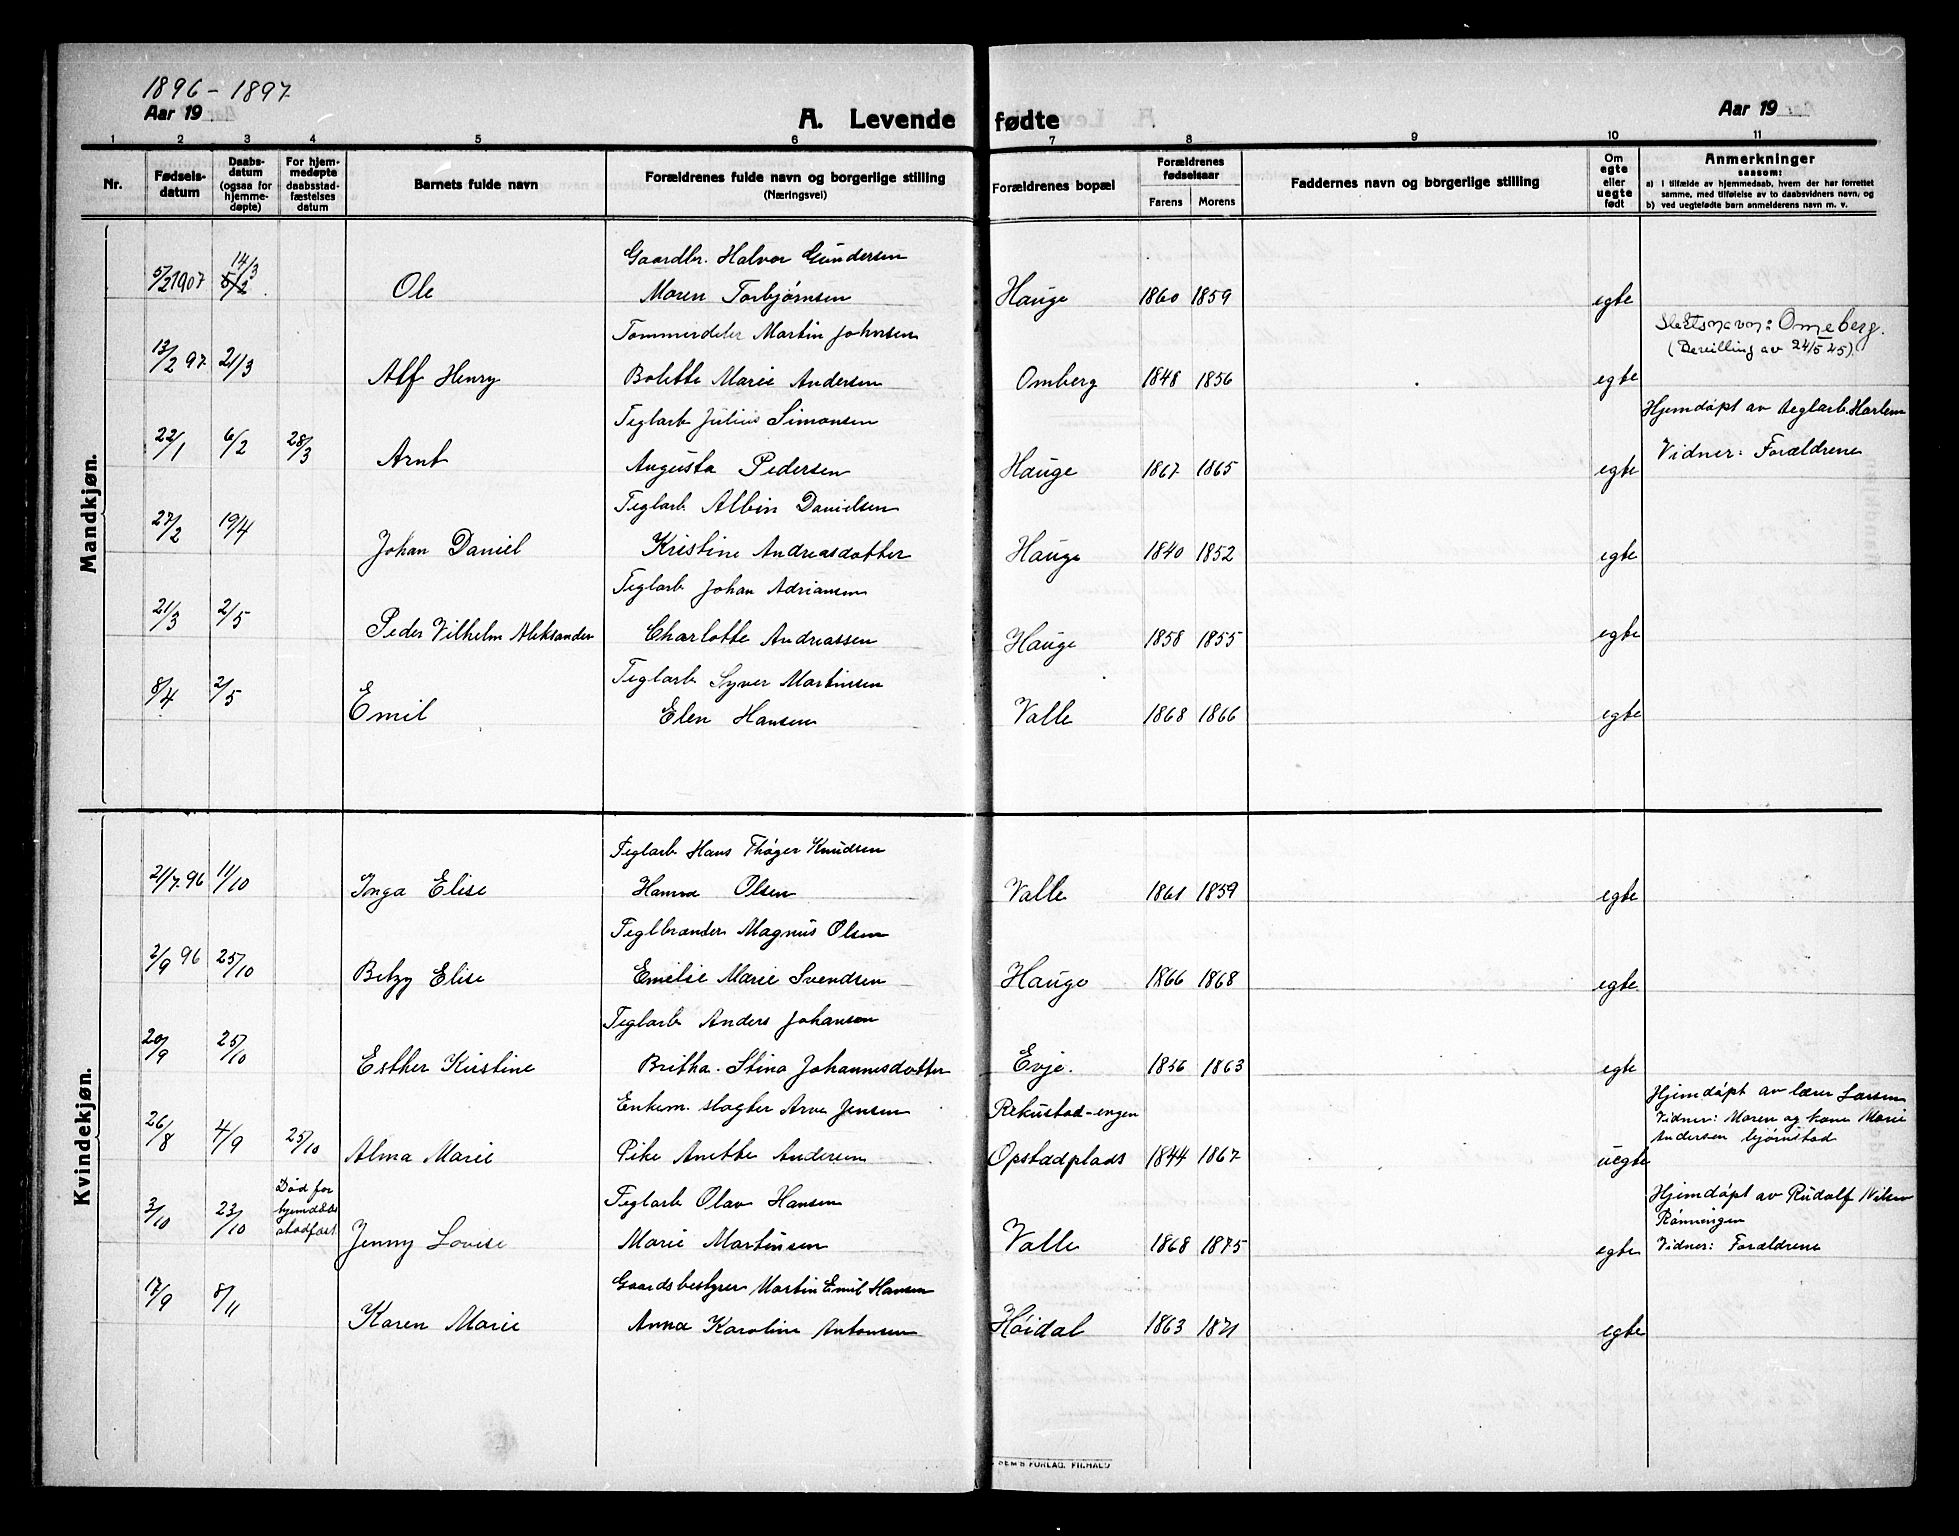 1896-1897
Aar 19
A. Levende fødte
Aar 19
1 2 3 4 5 6 7 8 9 10 11
Nr.
Fødsels-
datum
Daabs-
datum
(ogsaa for
hjemme-
døpte)
For hjem-
medøpte
daabsstad-
fæstelses
datum
Barnets fulde navn
Forældrenes fulde navn og borgerlige stilling
(Næringsvei)
Forældrenes bopæl
Forældrenes
fødselsaar
Farens Morens
Faddernes navn og borgerlige stilling
Om
egte
eller
uegte
født
Anmerkninger
saasom:
a) i tilfælde av hjemmedaab, hvem der har forrettet
samme, med tilføielse av to daabsvidners navn, og
b) ved uegtefødte barn anmelderens navn m. v.
Mandkjøn.
Gaardbr. Halvor Gundersen
14/3
5/2 1907 5/2 Ole Maren Torbjørnsen Hauge 1860 1859 egte
Tommerdeler Martin Johnsen
Slektsnavn: Omeberg.
(Bevilling av 24/5 45).
13/2 97 21/3 Alf Henry Bolette Marie Andersen Omberg 1848 1856 egte
Teglarb Julius Simonsen
Hjemdøpt av teglarb. Harlem
22/1 6/2 28/3 Arnt Augusta Pedersen Hauge 1867 1865 egte Vidner: Forældrene
Teglarb Albin Danielsen
27/2 19/4 Johan Daniel Kristine Andreasdotter Hauge 1840 1852 egte
Teglarb Johan Adriansen
21/3 2/5 Peder Vilhelm Aleksander Charlotte Andreassen Hauge 1858 1855 egte
Teglarb Syver Martinsen
8/4 2/5 Emil Elen Hansen Valle 1868 1866 egte
Kvindekjøn.
Teglarb Hans Thøger Knudsen
21/7 96 11/10 Inga Elise Hanna Olsen Valle 1861 1859 egte
Teglbrænder Magnus Olsen
2/9 96 25/10 Betzy Elise Emelie Marie Svendsen Hauge 1866 1868 egte
Teglarb Anders Johansen
20/9 25/10 Esther Kirstine Britha. Stina Johannesdotter Evje. 1856 1863 egte
Enkem. slagter Arve Jensen Rekustad-engen
Hjemdøpt av lærer Larsen
Vidner: Maren og kone Marie
Andersen bjørnstad
26/8 4/9 25/10 Alma Marie Pike Anette Andersen Opstadplads 1844 1867 uegte
Død for
hjemdåbs
stadfæst
Teglarb Olav Hansen
Hjemdøpt av Rudolf Nilsen
Rønningen
3/10 23/10 Jenny Lovise Marie Martinsen Valle 1868 1875 egte Vidner: Forældrene
Gaardsbestyrer Martin Emil Hansen
17/9 8/11 Karen Marie Anna Karoline Antonsen Høidal 1863 1871 egte
FORLAG, FR.HALD